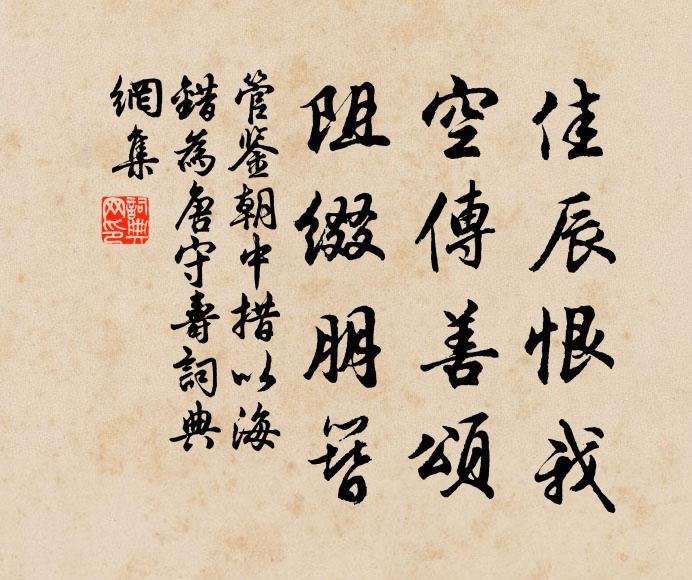 佳辰恨我
空傳善頌
阻綴朋簪
管鉴朝中措以海
錯為唐守壽詞典
網集
詞典網印